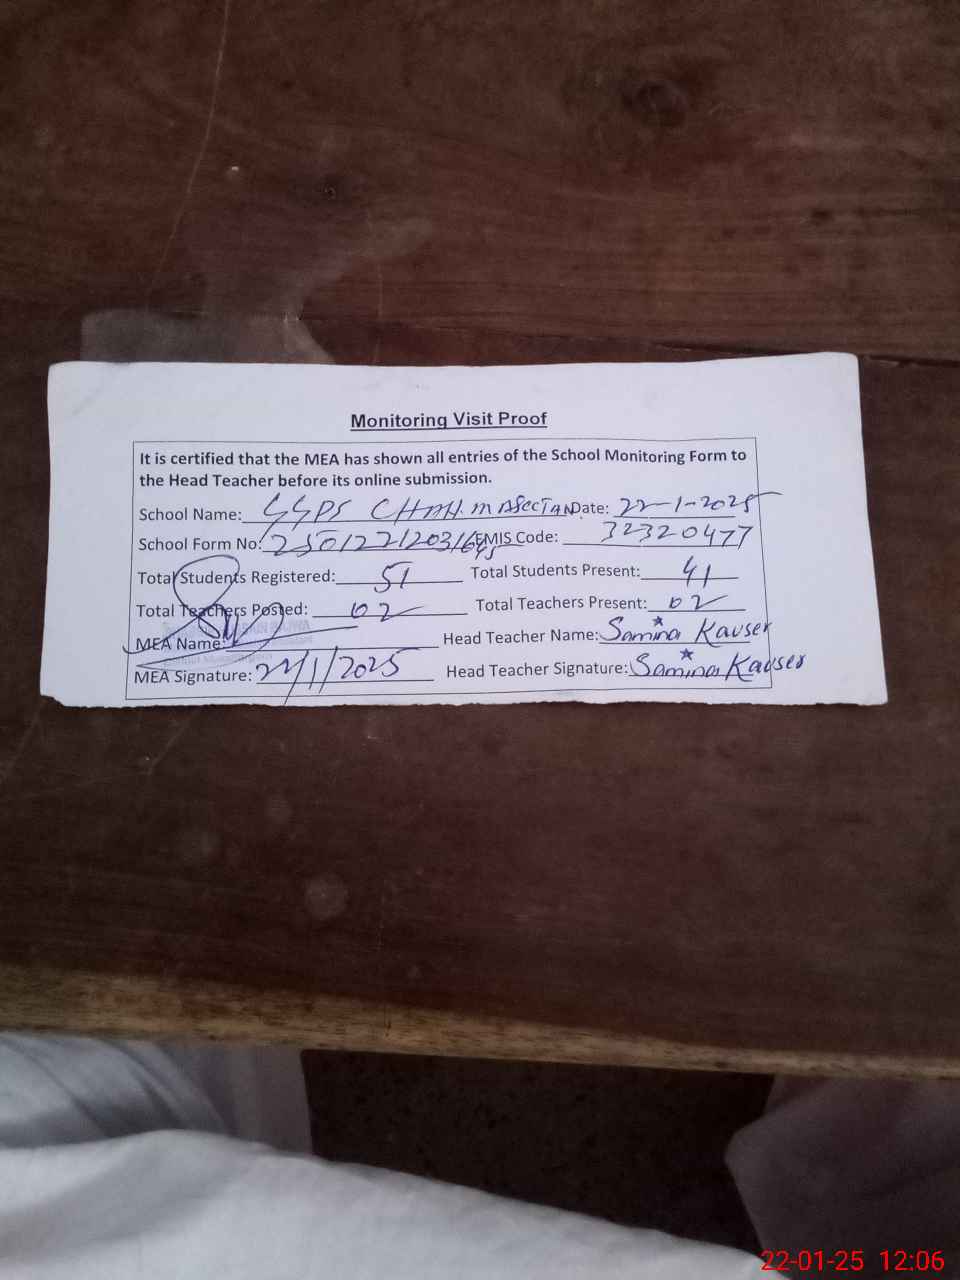 Monitoring Visit Proof
It is certified that the MEA has shown all entries of the School Monitoring Form to
the Head Teacher before its online submission.
School Name: GGPS CHAH MASEETAN Date: 22-1-2025
School Form No: EMIS Code: 32320477
Total Students Registered: 51 Total Students Present: 41
Total Teachers Posted: 02 Total Teachers Present: 02
MEA Name: Head Teacher Name: Samina Kauser
MEA Signature: 22/1/2025 Head Teacher Signature: Samina Kauser
22-01-25 12:06